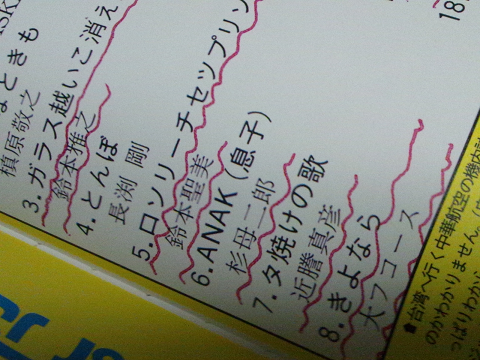 なときも
槙原敬之
3.ガラス越いこ消え
鈴本雅之
4.とんぼ
長渕 剛
5.ロンリーチセツプリン
鈴本聖美
6.ANAK(息子)
杉母二郎
7.タ焼けの歌
近謄真彦
8.きよなら
大フコース
18
●台湾へ行く中華航空の機内
のかわかりません。
っぱりわか